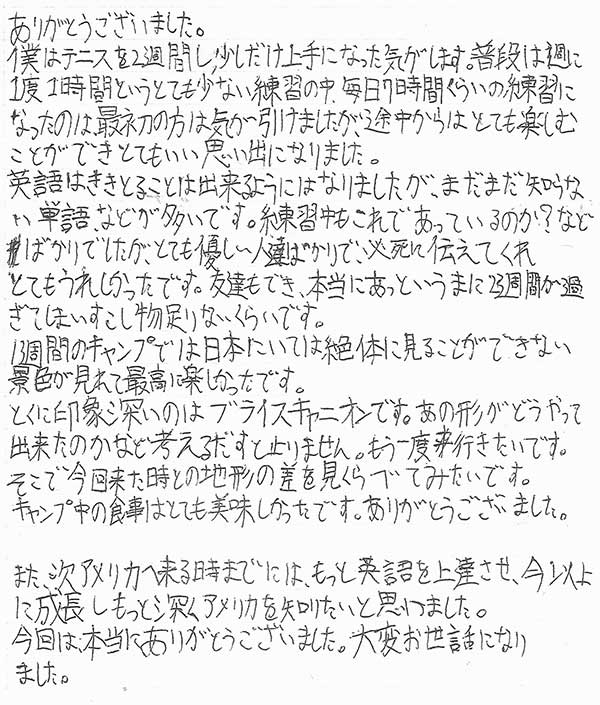 ありがとうございました。
僕はテニスを2週間し少しだけ上手になった気がします。普段は1週に
1度1時間というとても少ない練習の中、毎日7時間くらいの練習に
なったのは最初の方は気が引けましたが、途中からはとても楽しむ
ことができとてもいい思い出になりました。
英語はききとることは出来るようにはなりましたが、まだまだ知らな
い単語などが多いです。練習中もこれであっているのか?など
ばかりでしたが、とても優しい人達ばかりで、必死に伝えてくれ
とてもうれしかったです。友達もでき、本当にあっというまに2週間が過
ぎてしまいすこし物足りないくらいです。
1週間のキャンプでは日本にいては絶体に見ることができない
景色が見れて最高に楽しかったです。
とくに印象深いのはブライスキャニオンです。あの形がどうやって
出来たのかなど考えるだすと止りません。もう一度行きたいです。
そこで今回来た時との地形の差を見くらべてみたいです。
キャンプ中の食事はとても美味しかったです。ありがとうございました。
また、次アメリカへ来る時までには、もっと英語を上達させ、今以上
に成長しもっと深くアメリカを知りたいと思いました。
今回は本当にありがとうございました。大変お世話になり
ました。